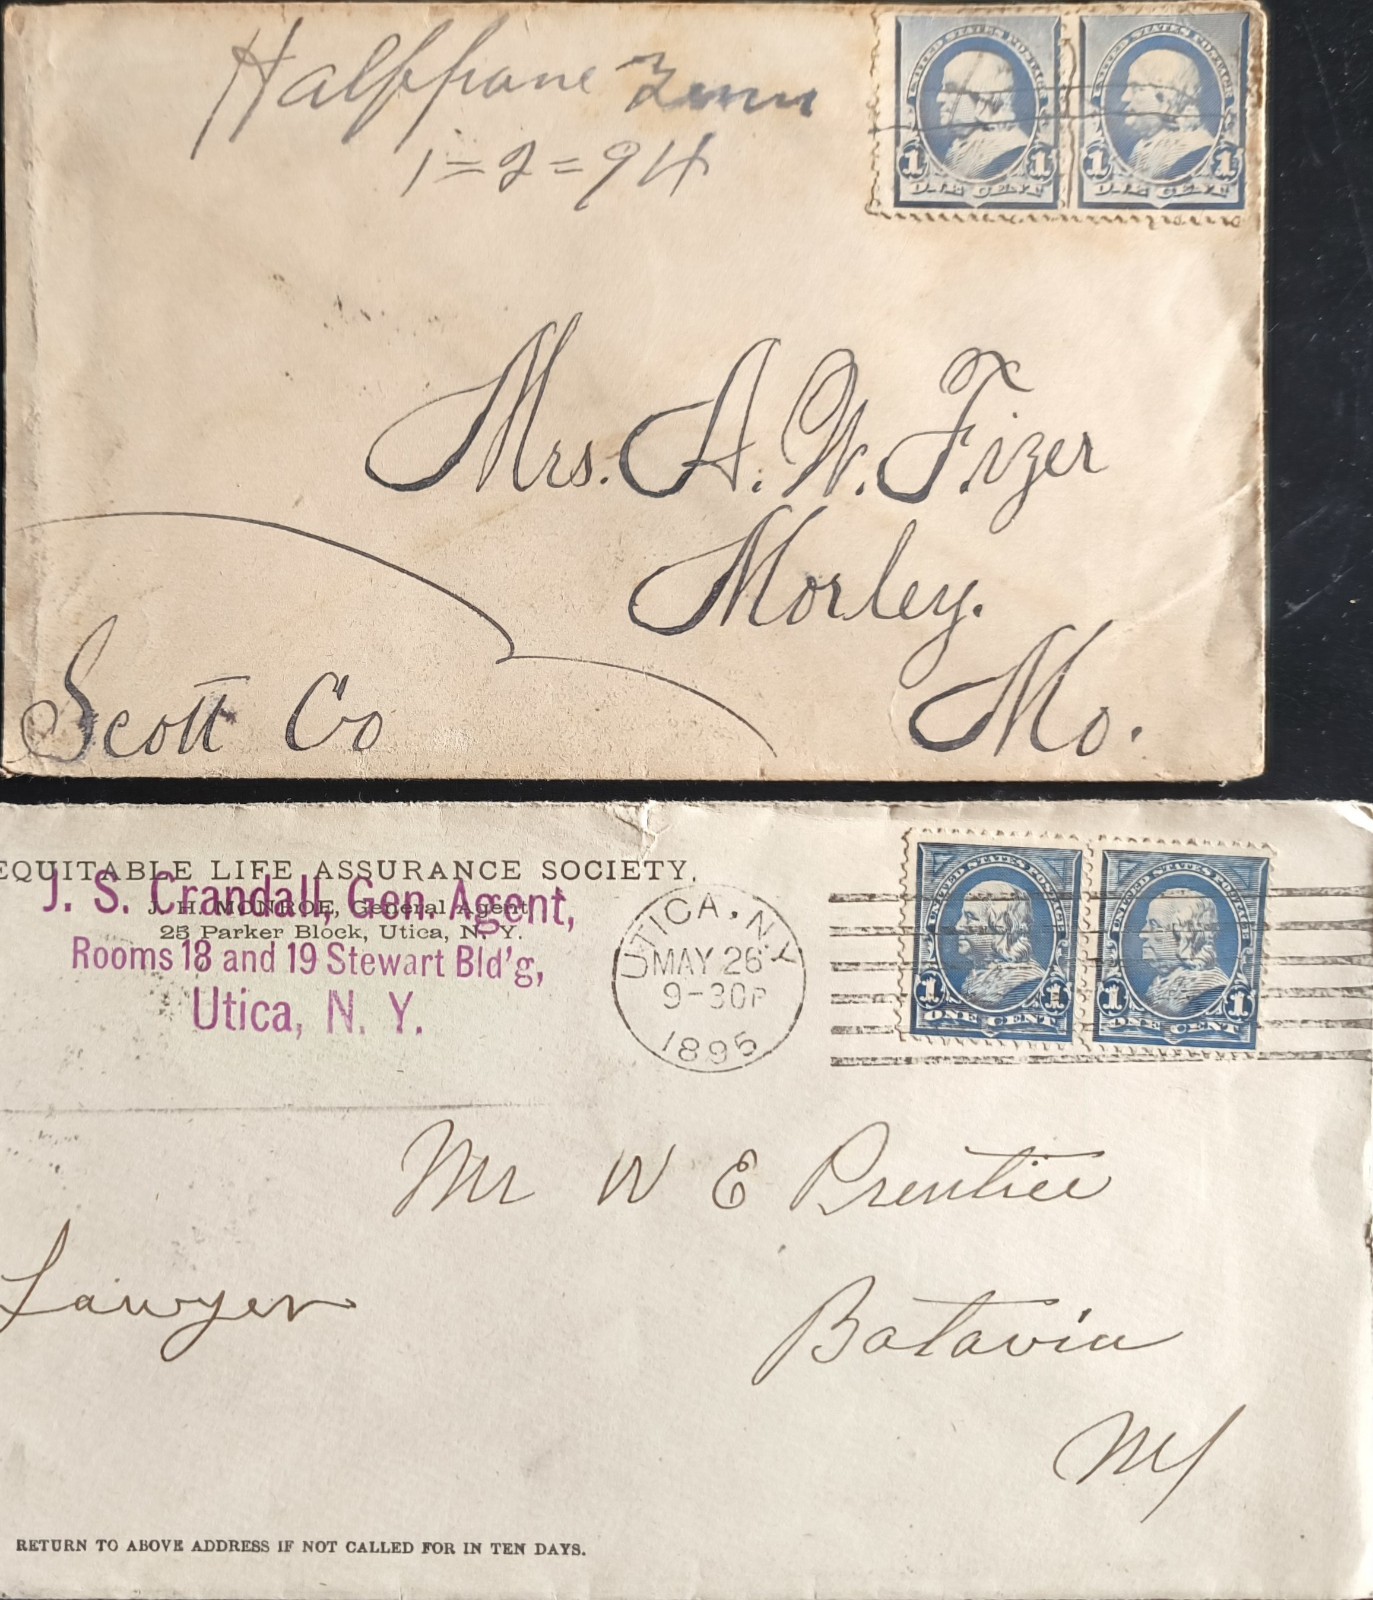 Halfpone Tenn
1=2=94
UNITED STATES POSTAGE
1 1
ONE CENT
UNITED STATES POSTAGE
1 1
ONE CENT
Mrs. A. W. Fizer
Morley.
Scott Co
Mo.
EQUITABLE LIFE ASSURANCE SOCIETY.
J. S. Crandall, Gen. Agent,
J. H. MONROE, General Agent
25 Parker Block, Utica, N. Y.
Rooms 18 and 19 Stewart Bld'g,
Utica, N. Y.
UTICA, N.Y.
MAY 26
9-30P
1895
UNITED STATES POSTAGE
1 1
ONE CENT
UNITED STATES POSTAGE
1 1
ONE CENT
Mr W E Prentice
Lawyer
Batavia
NY
RETURN TO ABOVE ADDRESS IF NOT CALLED FOR IN TEN DAYS.